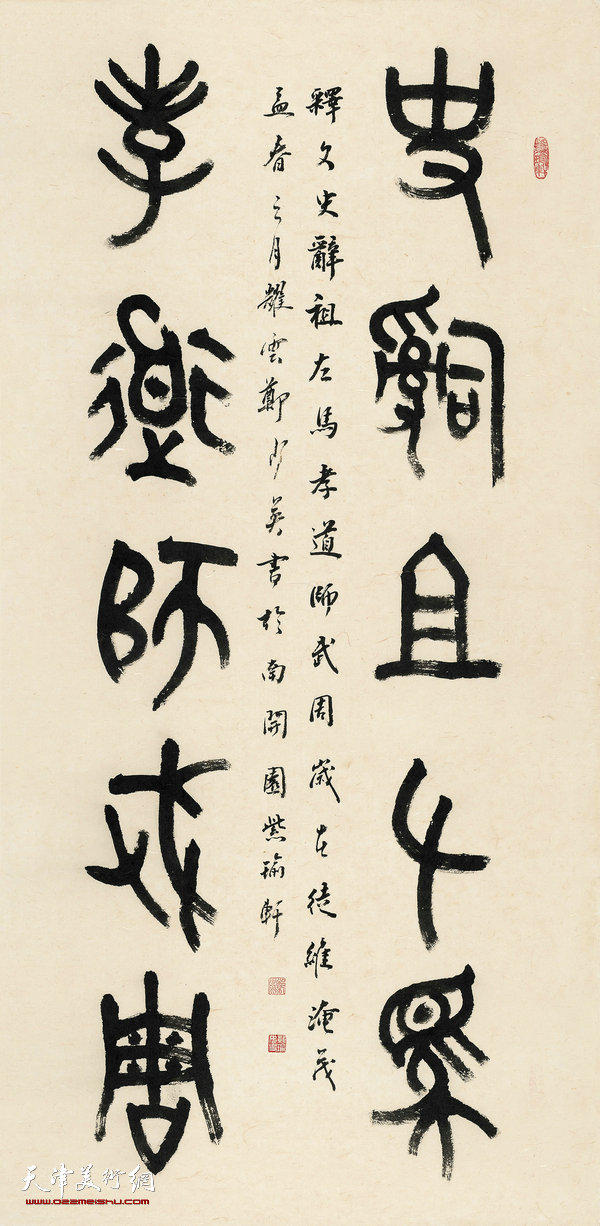 史辭且𠂇馬
釋文史辭祖左馬孝道師武周歲在徒維淹茂
孟春之月龍雲鄭少英書於南開園紫瑜軒
孝道師武周
天津美術網
www.022meishu.com